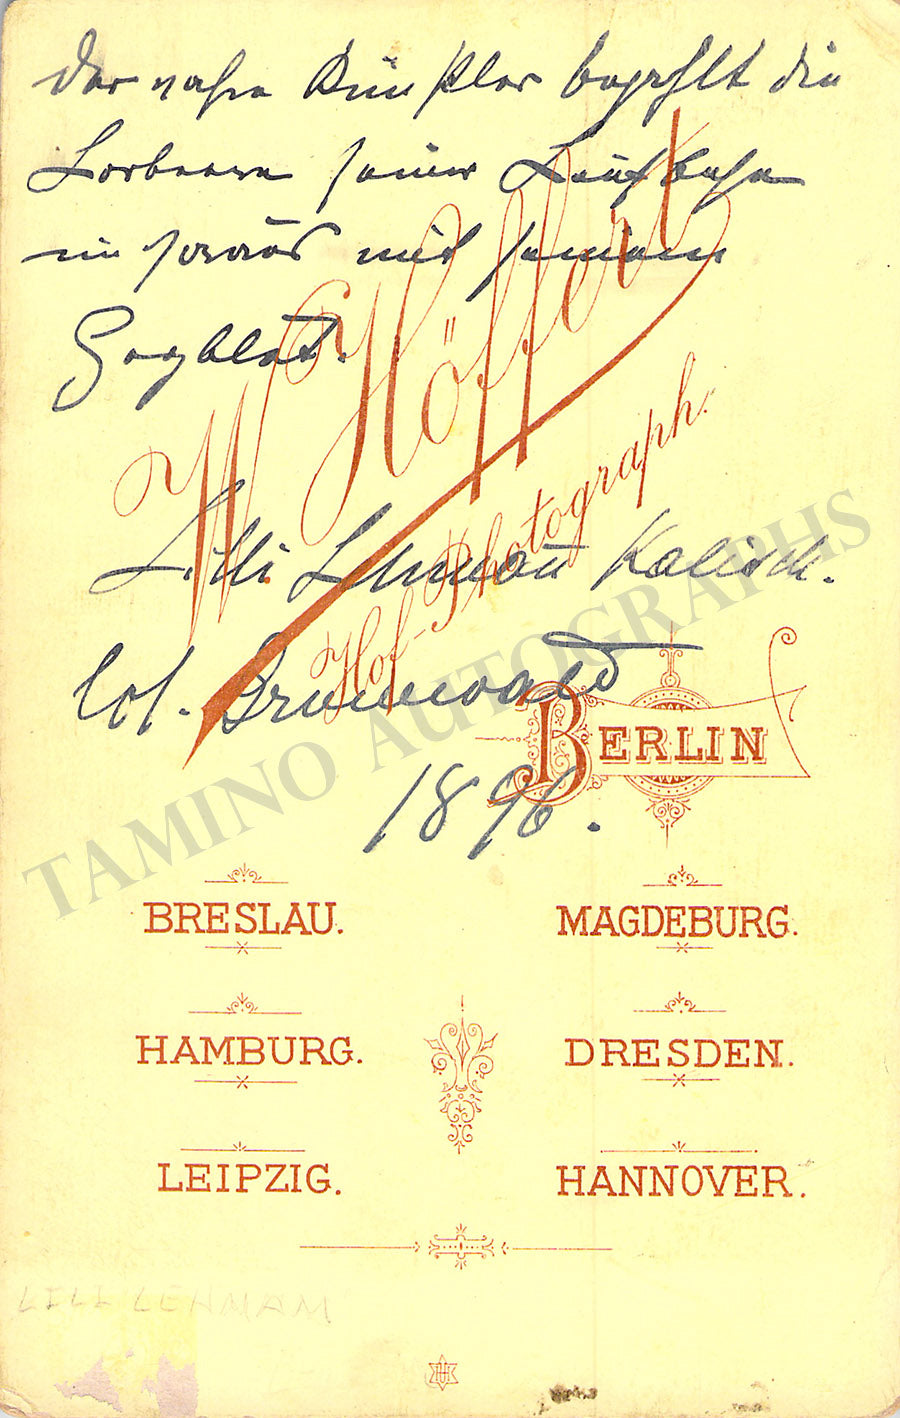 Der wahre Künstler bezahlt die
Lorbeeren seiner Laufbahn
mit seinem
Herzblut.
W. Höffert
Hof-Photograph.
Lilli Lehmann Kalisch.
Col. Grunewald
BERLIN
1896.
TAMINO AUTOGRAPHS
BRESLAU.
MAGDEBURG.
HAMBURG.
DRESDEN.
LEIPZIG.
HANNOVER.
LILI LEHMAM